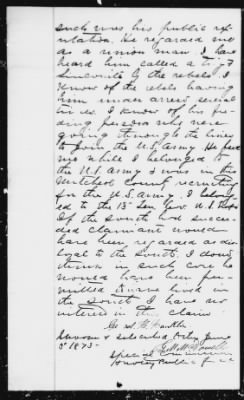 such was his public rep
utation, he regarded me
as a union man I have
heard him called a
Lincolnite by the rebels. I
know of the rebels having
him under arrest several
times. I know of his fee
ding persons who were
going through the lines
to join the U.S. army He fed
me while I belonged to
the U.S. army I was in
Mitchell County recruiting
for the U.S. army. I belong
ed to the 13th Ten U.S.
If the south had succee
ded claimant would
have been regarded as dis
loyal to the South, I dont
think in such case he
would have been per
mitted to have lived in
the South I have no
interest in this claim
Geo. W.
Sworn & subscribed this June
5th 1873.
Special Commissioner